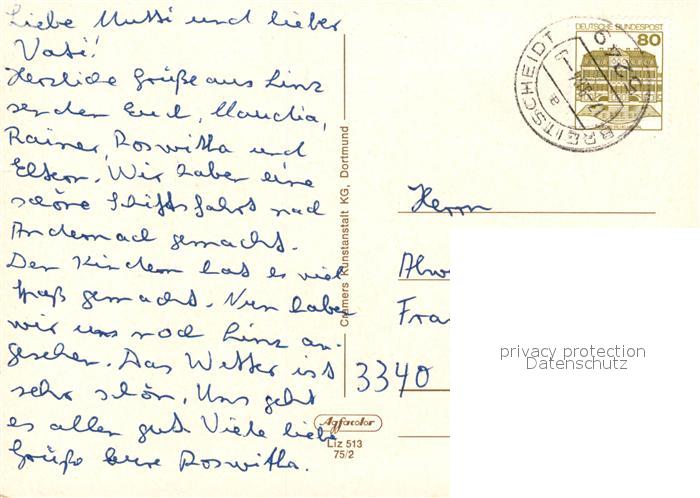 Liebe Mutti und lieber
Vati!
Herzliche Grüße aus Linz
senden Euch, Claudia,
Rainer, Roswitha und
Eltern. Wir haben eine
schöne Schiffsfahrt nach
Andernach gemacht.
Den Kindern hat es viel
Spaß gemacht. Nun haben
wir uns noch Linz an-
gesehen. Das Wetter ist
sehr schön. Uns geht
es allen gut. Viele liebe
Grüße Eure Roswitha.
Cramers Kunstanstalt KG, Dortmund
Agfacolor
Liz 513
75/2
DEUTSCHE BUNDESPOST
80
BREITSCHEIDT
a
Herrn
Alw
Fra
3340
privacy protection
Datenschutz